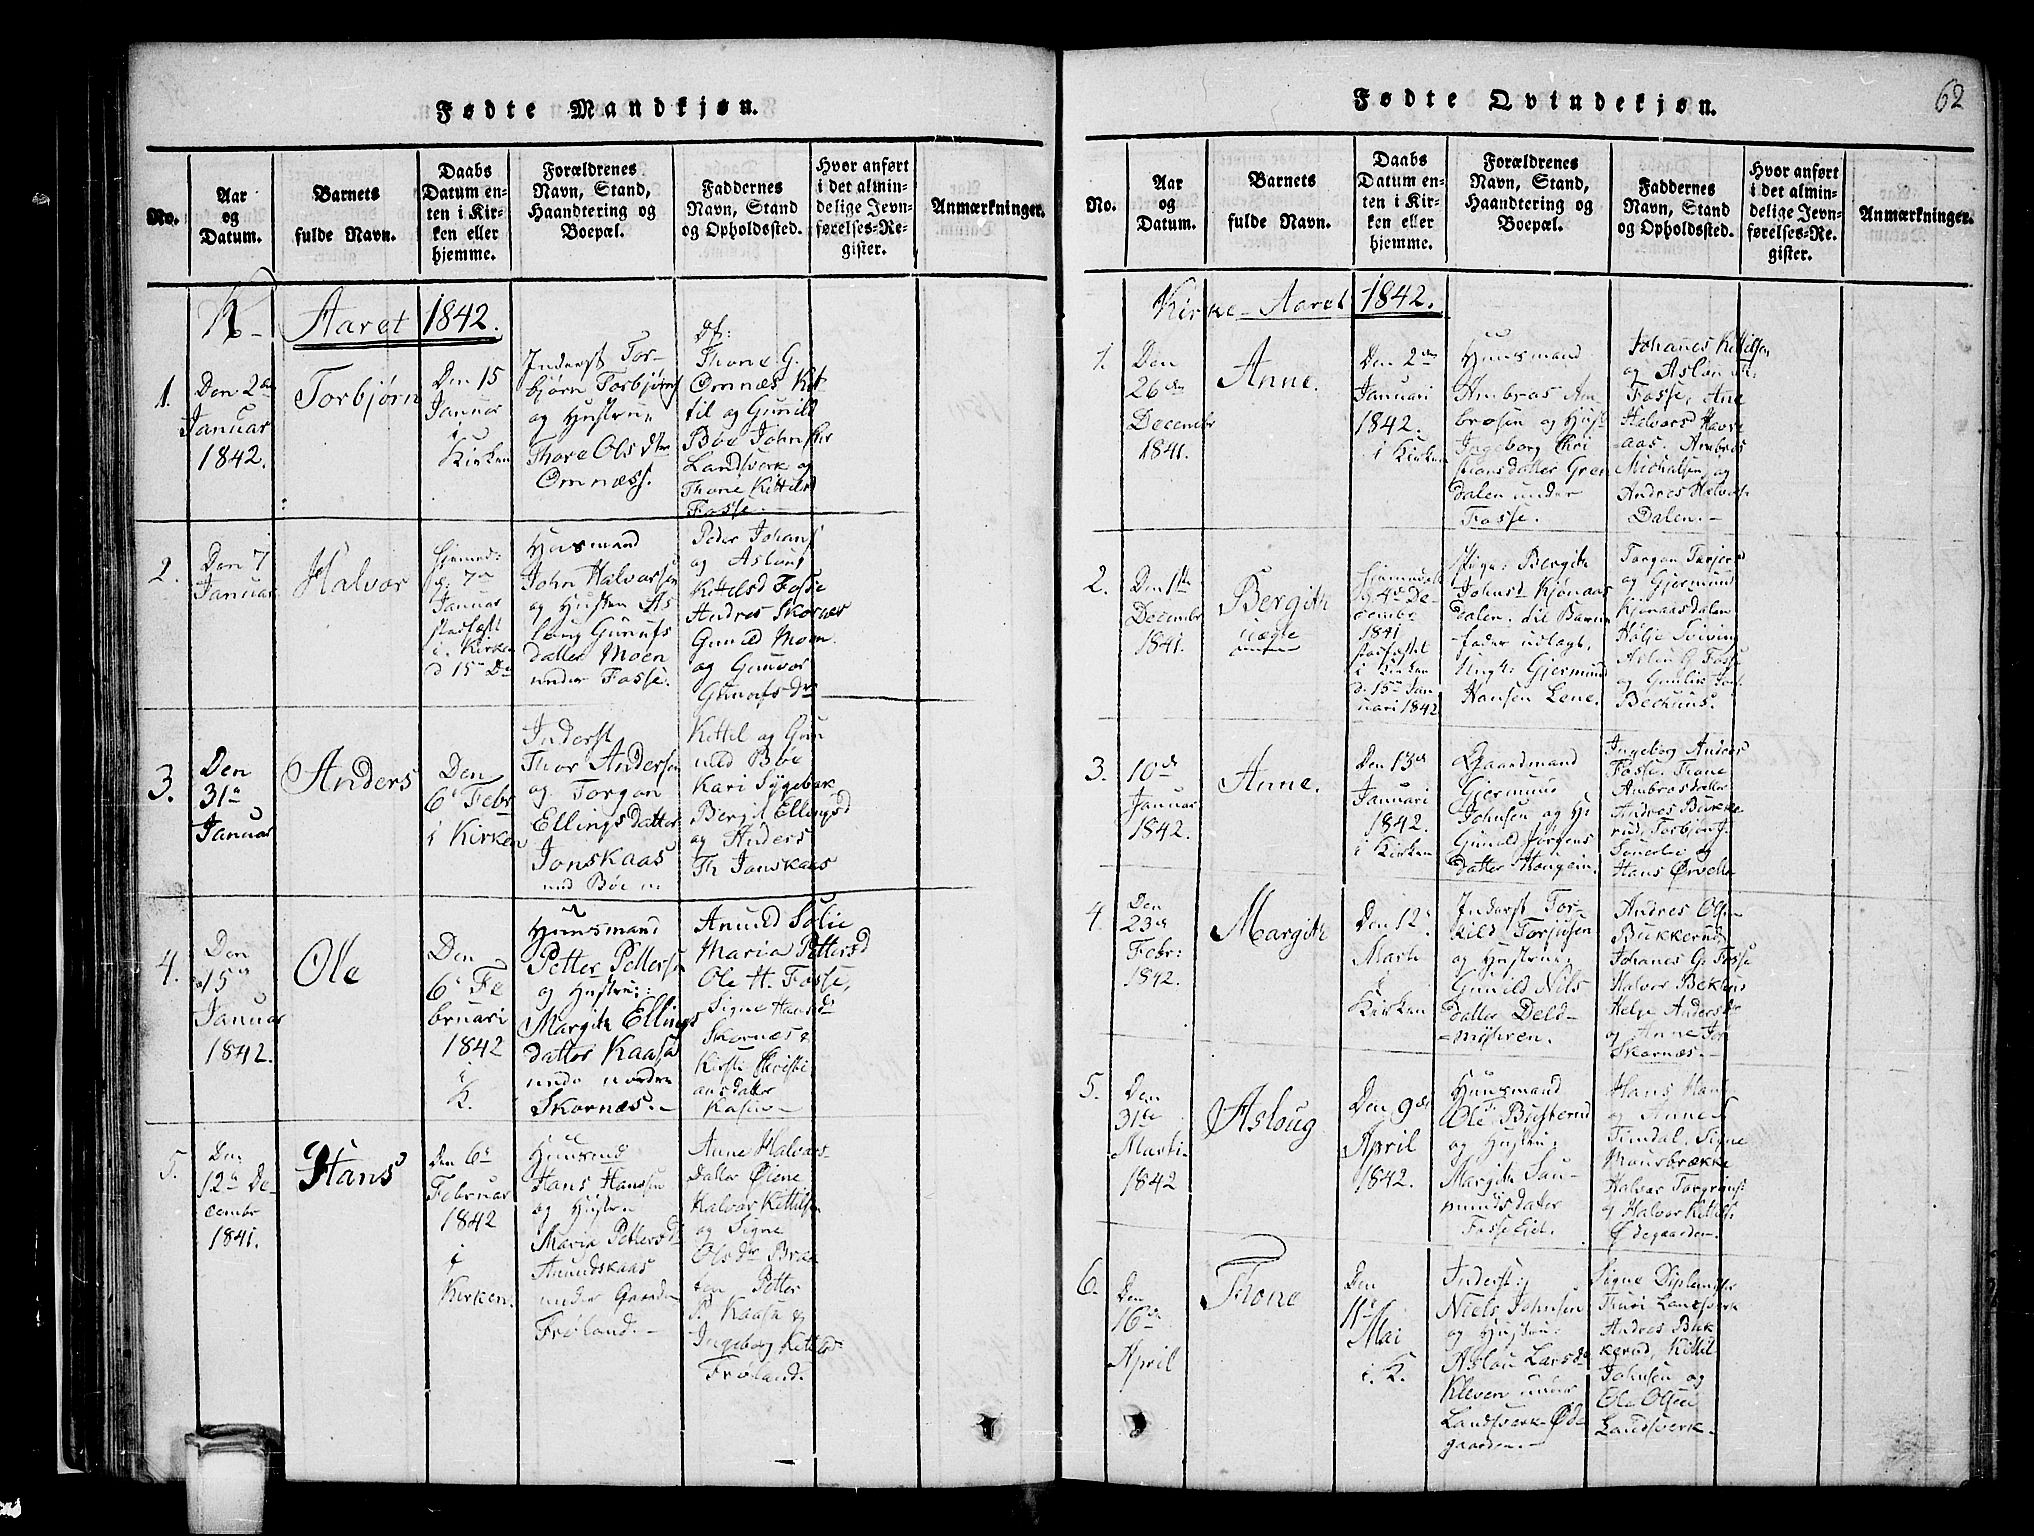 Fødte Mandkjøn.
No.
Aar
og
Datum.
Barnets
fulde Navn.
Daabs
Datum en-
ten i Kir-
ken eller
hjemme.
Forældrenes
Navn, Stand,
Haandtering og
Boepæl.
Faddernes
Navn, Stand
og Opholdssted.
Hvor anført
i det almin-
delige Jevn-
førelses-Re-
gister.
Anmærkninger.
K- Aaret 1842.
1.
Den 2den
Januar
1842.
Torbjørn
Den 15
Januar
i
Kirken
Inderst Tor-
bjørn Torbjørns
og Hustru
Thore Ols dtr
Omnæss.
Df:
Thone G.
Omnæs Ket
til og Gunild
Bøe John
Landsverk og
Thone Kittilsd
Fosse.
2.
Den 7
Januar
Halvor
Hjemmed:
d: 7de
Januar
stadfæst
i Kirken
d 15de Do
Huusmand
John Halvorsen
og Hustru As
loug Gunufs
datter Moen
under Fosse.
Peder Johans
og Aslaug
Kittelsd Fosse
Andres Skornes
Gunild Moen
og Gunvor
Gunufs dr
3.
Den
31te
Januar
Anders
Den
6te Febr
i Kirken
Inderst
Thor Andersen
og Torgon
Ellings datter
Jonskaas
und Bøe
Kittel og Gun
nild Bøe
Kari Sygebæk
Bergit Ellingsd
og Anders
Th Jonskaas
4.
Den
15de
Januar
1842.
Ole
Den
6te Fe
bruari
1842
i
K.
Huusmand
Petter Pettersen
og Hustru:
Margith Ellings
datter Kaasa
under nordre
Skornæs.-
Anund Solie
Maria Pettersd
Ole H. Fosse,
Signe Hansd
Skornæs &
Kirsti Christi
ansdatter
Kasin-
5.
Den
12te De-
cembr
1841.
Hans
Den 6te
Februar
1842
i
Kirken.
Huusmd
Hans Hansen
og Hustru
Maria Pettersd
Anundskaas
under Gaarden
Frøland.-
Anne Halvors
datter Øiene
Halvor Kittilsen
og Signe
Ols dtr Braa
ten Petter
P. Kaasa &
Ingeborg Kittilsd
Frøland.
Fødte Qvindekjøn.
62
No.
Aar
og
Datum.
Barnets
fulde Navn.
Daabs
Datum en-
ten i Kir-
ken eller
hjemme.
Forældrenes
Navn, Stand,
Haandtering og
Boepæl.
Faddernes
Navn, Stand
og Opholdssted.
Hvor anført
i det almin-
delige Jevn-
førelses-Re-
gister.
Anmærkninger.
Kirke-Aaret 1842.
1.
Den
26de
Decembr
1841.
Anne.
Den 2den
Januari
1842.
i Kirken
Huusmand
Ambros Am-
brosen og Hust
Ingeborg Chri
stians datter Grøn
dalen under
Fosse.
Johanes Kittilsen
og Aslou
Fosse, Ane
Halvors Havre
aas. Ambros
Michalsen og
Andres Halvors
Dalen.-
2.
Den 1ste
Decembr
1841.
Bergith
uægte
Hjemmedøbt
d 4de De-
cember
1841
stadfæstet
i Kirken
d. 15de Jan
uari 1842
Pige: Bergith
Johnsd Kjønaas
dalen. til Barne
fader udlagt,
Ungk: Gjermund
Hansen Lene.
Torgon Torjersd
og Gjermund
Kjonaasdalen
Hølje Tviving
Aslou G. Fosse
og Gunlie
Bechuus.
3.
10de
Januar
1842.
Anne.
Den 13de
Januari
1842.
i Kirken
Gaardmand
Gjermund
Johnsen og H:
Gunild Jørgens
datter Haugein.
Ingeborg Anders
Fosse. Thone
Ambrosdatter
Andres Bukke
rud, Torbjørn J.
Souerlei og
Hans Ørvella
4.
Den
23de
Febr:
1842.
Margith
Den 12te
Marti
i
Kirken
Inderst Tor-
kild Torjusen
og Hustrue:
Gunild Nils
datter Deld-
-myhren.
Andres Ols.
Bukkerud
Johanes G. Fosse
Halvor Bekhus
Helge Anders dr
og Anne Tor
Skornæs.-
5.
Den
31te
Marti
1842
Asloug
Den 9de
April
1842.
Huusmand
Ole Busterud
og Hustru:
Margith Sau-
munds datter
Fosse Eiet.
Hans Hans
og Anne
Tindal. Signe
Mousbrække
Halvor Torgrimsd
og Halvor Kittils.
Ødegaarden.-
6.
Den
16de
April
Thone
Den
11te
Mai
i. K.
Inderst:
Niels Johnsen
og Hustru:
Aslou Larsd
Kleven under
Landsverk-Øde
gaarden.-
Signe Diplands
Thuri Landsverk
Andres Buk
kerud, Kittil
Johnsen og
Ole Olsen
Landsverk.